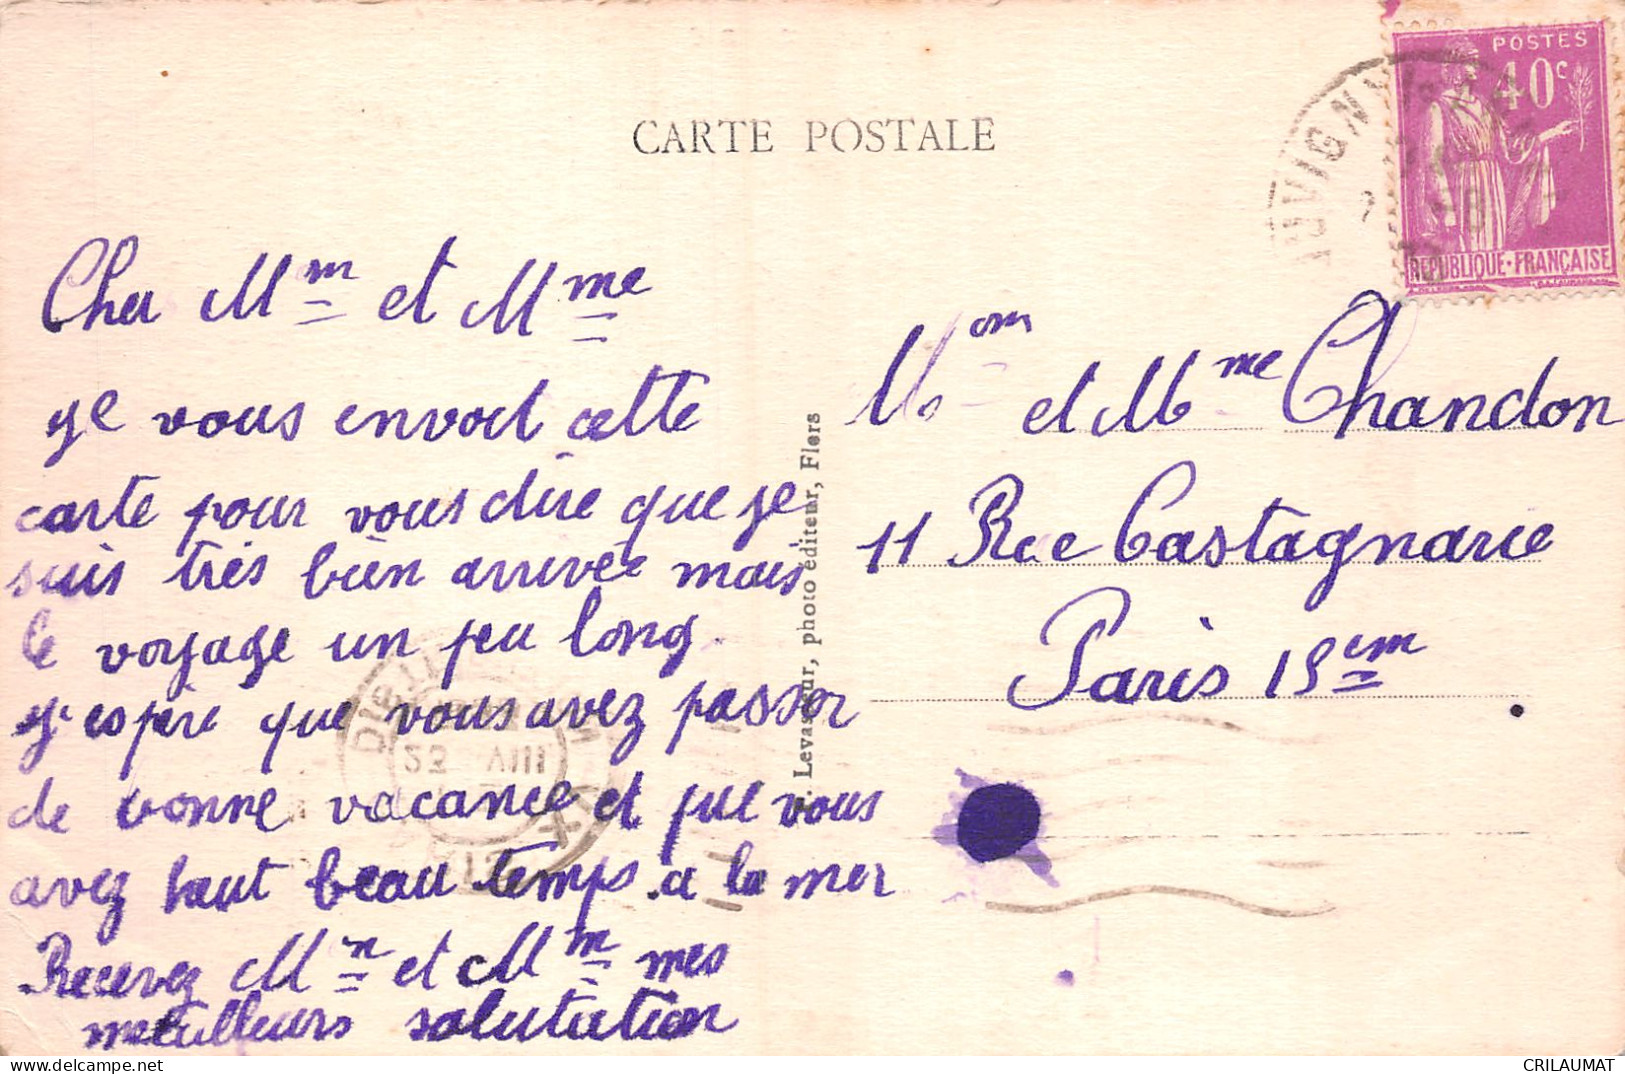 CARTE POSTALE
POSTES
40c
REPUBLIQUE·FRANÇAISE
Cher Mm et Mme
je vous envoit cette
carte pour vous dire que je
suis très bien arrivée mais
le voyage un peu long.
j'espère que vous avez passer
de bonne vacance et que vous
avez haut beau temps a la mer
Recevez Mn et Mm mes
meilulleurs salutation
Levasseur, photo éditeur, Flers
Mom et Mme Chandon
11 Rue Castagnarie
Paris 15em
23 VIII
CRILAUMAT